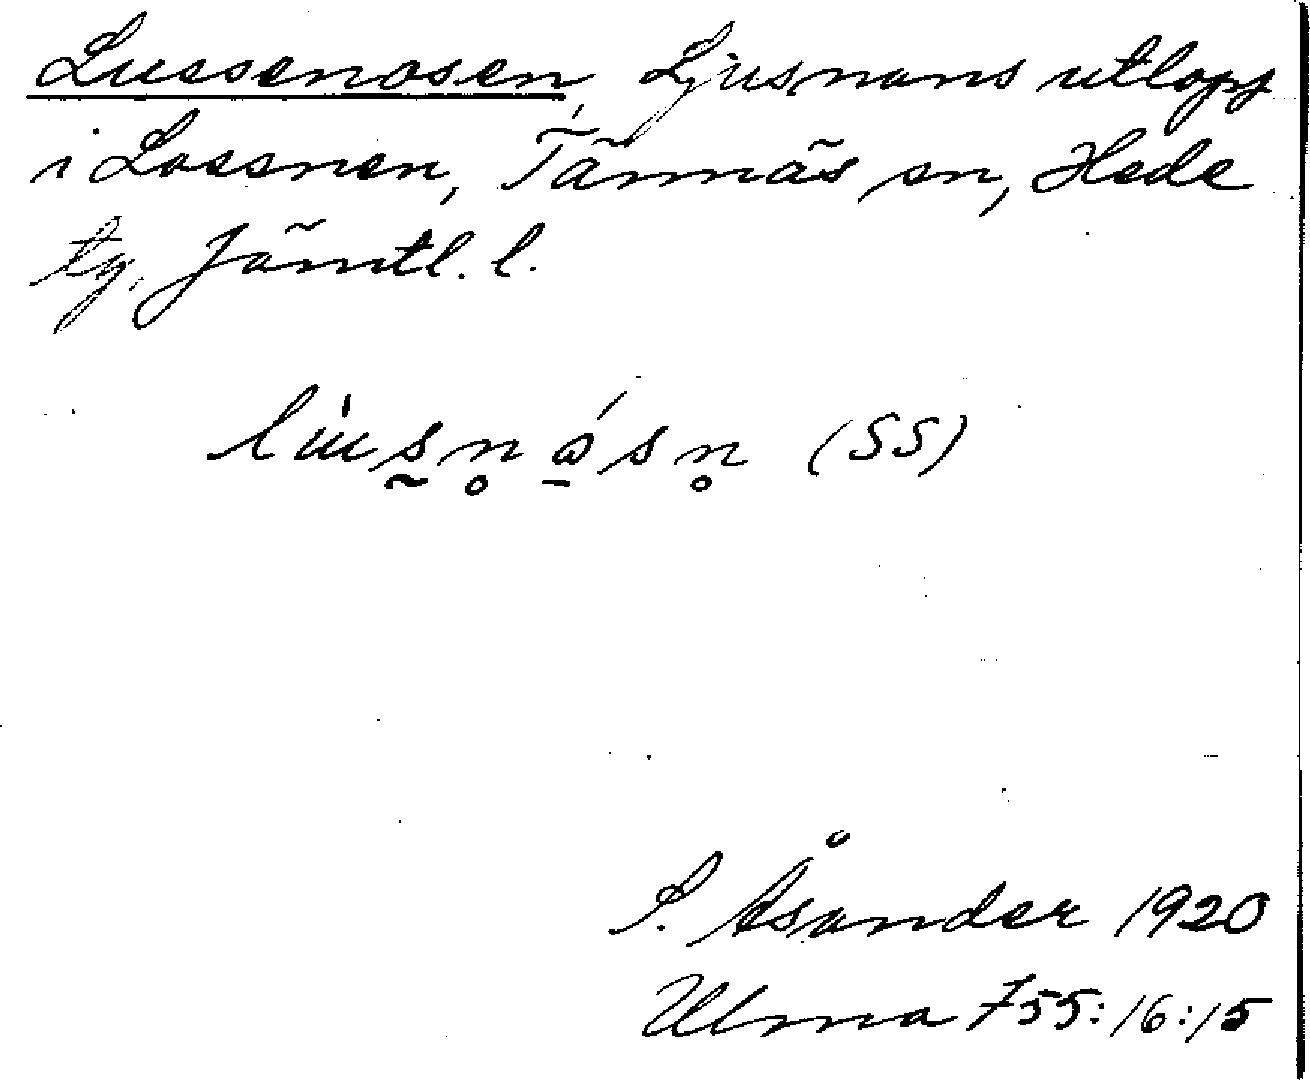 Lussenosen, Ljusnans utlopp
i Lossnen, Tännäs sn, Hede
tg. Jämtl. l.
(SS)
S. Åsander 1920
Ulma 755:16:15